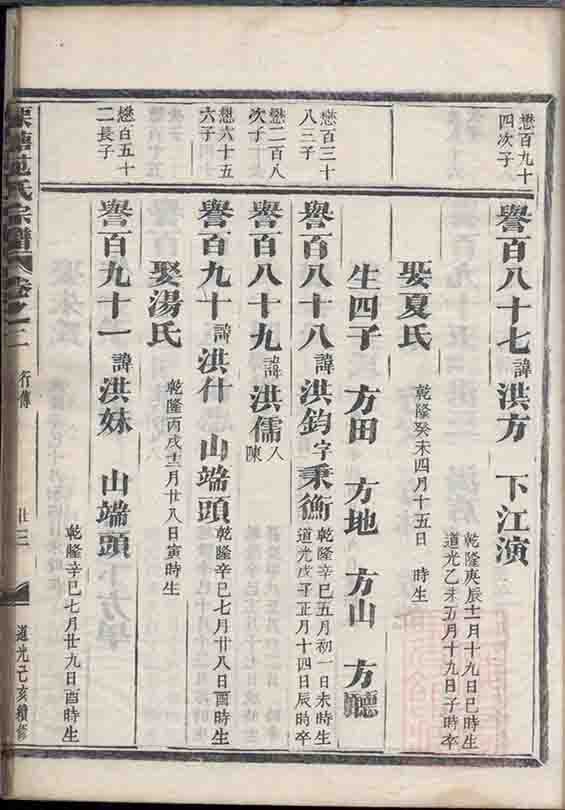 懋百九十
四次子
譽百八十七諱洪方 下江演
乾隆庚辰十一月十九日巳時生
道光乙未五月十九日子時卒
娶夏氏
乾隆癸未四月十五日 時生
生四子 方田 方地 方山 方聽
懋百三十
八三子
譽百八十八諱洪鈞字秉衡
乾隆辛巳五月初一日未時生
道光戊子正月十四日辰時卒
懋二百八
次子
譽百八十九諱洪儒入陳
懋六十五
六子
譽百九十諱洪什 山端頭
乾隆辛巳七月廿八日酉時生
娶湯氏
乾隆丙戌十二月廿八日寅時生
懋百五十
二長子
譽百九十一諱洪妹 山端頭
乾隆辛巳七月廿九日酉時生
氏宗譜 卷之二 行傳 廿三 道光己亥續修